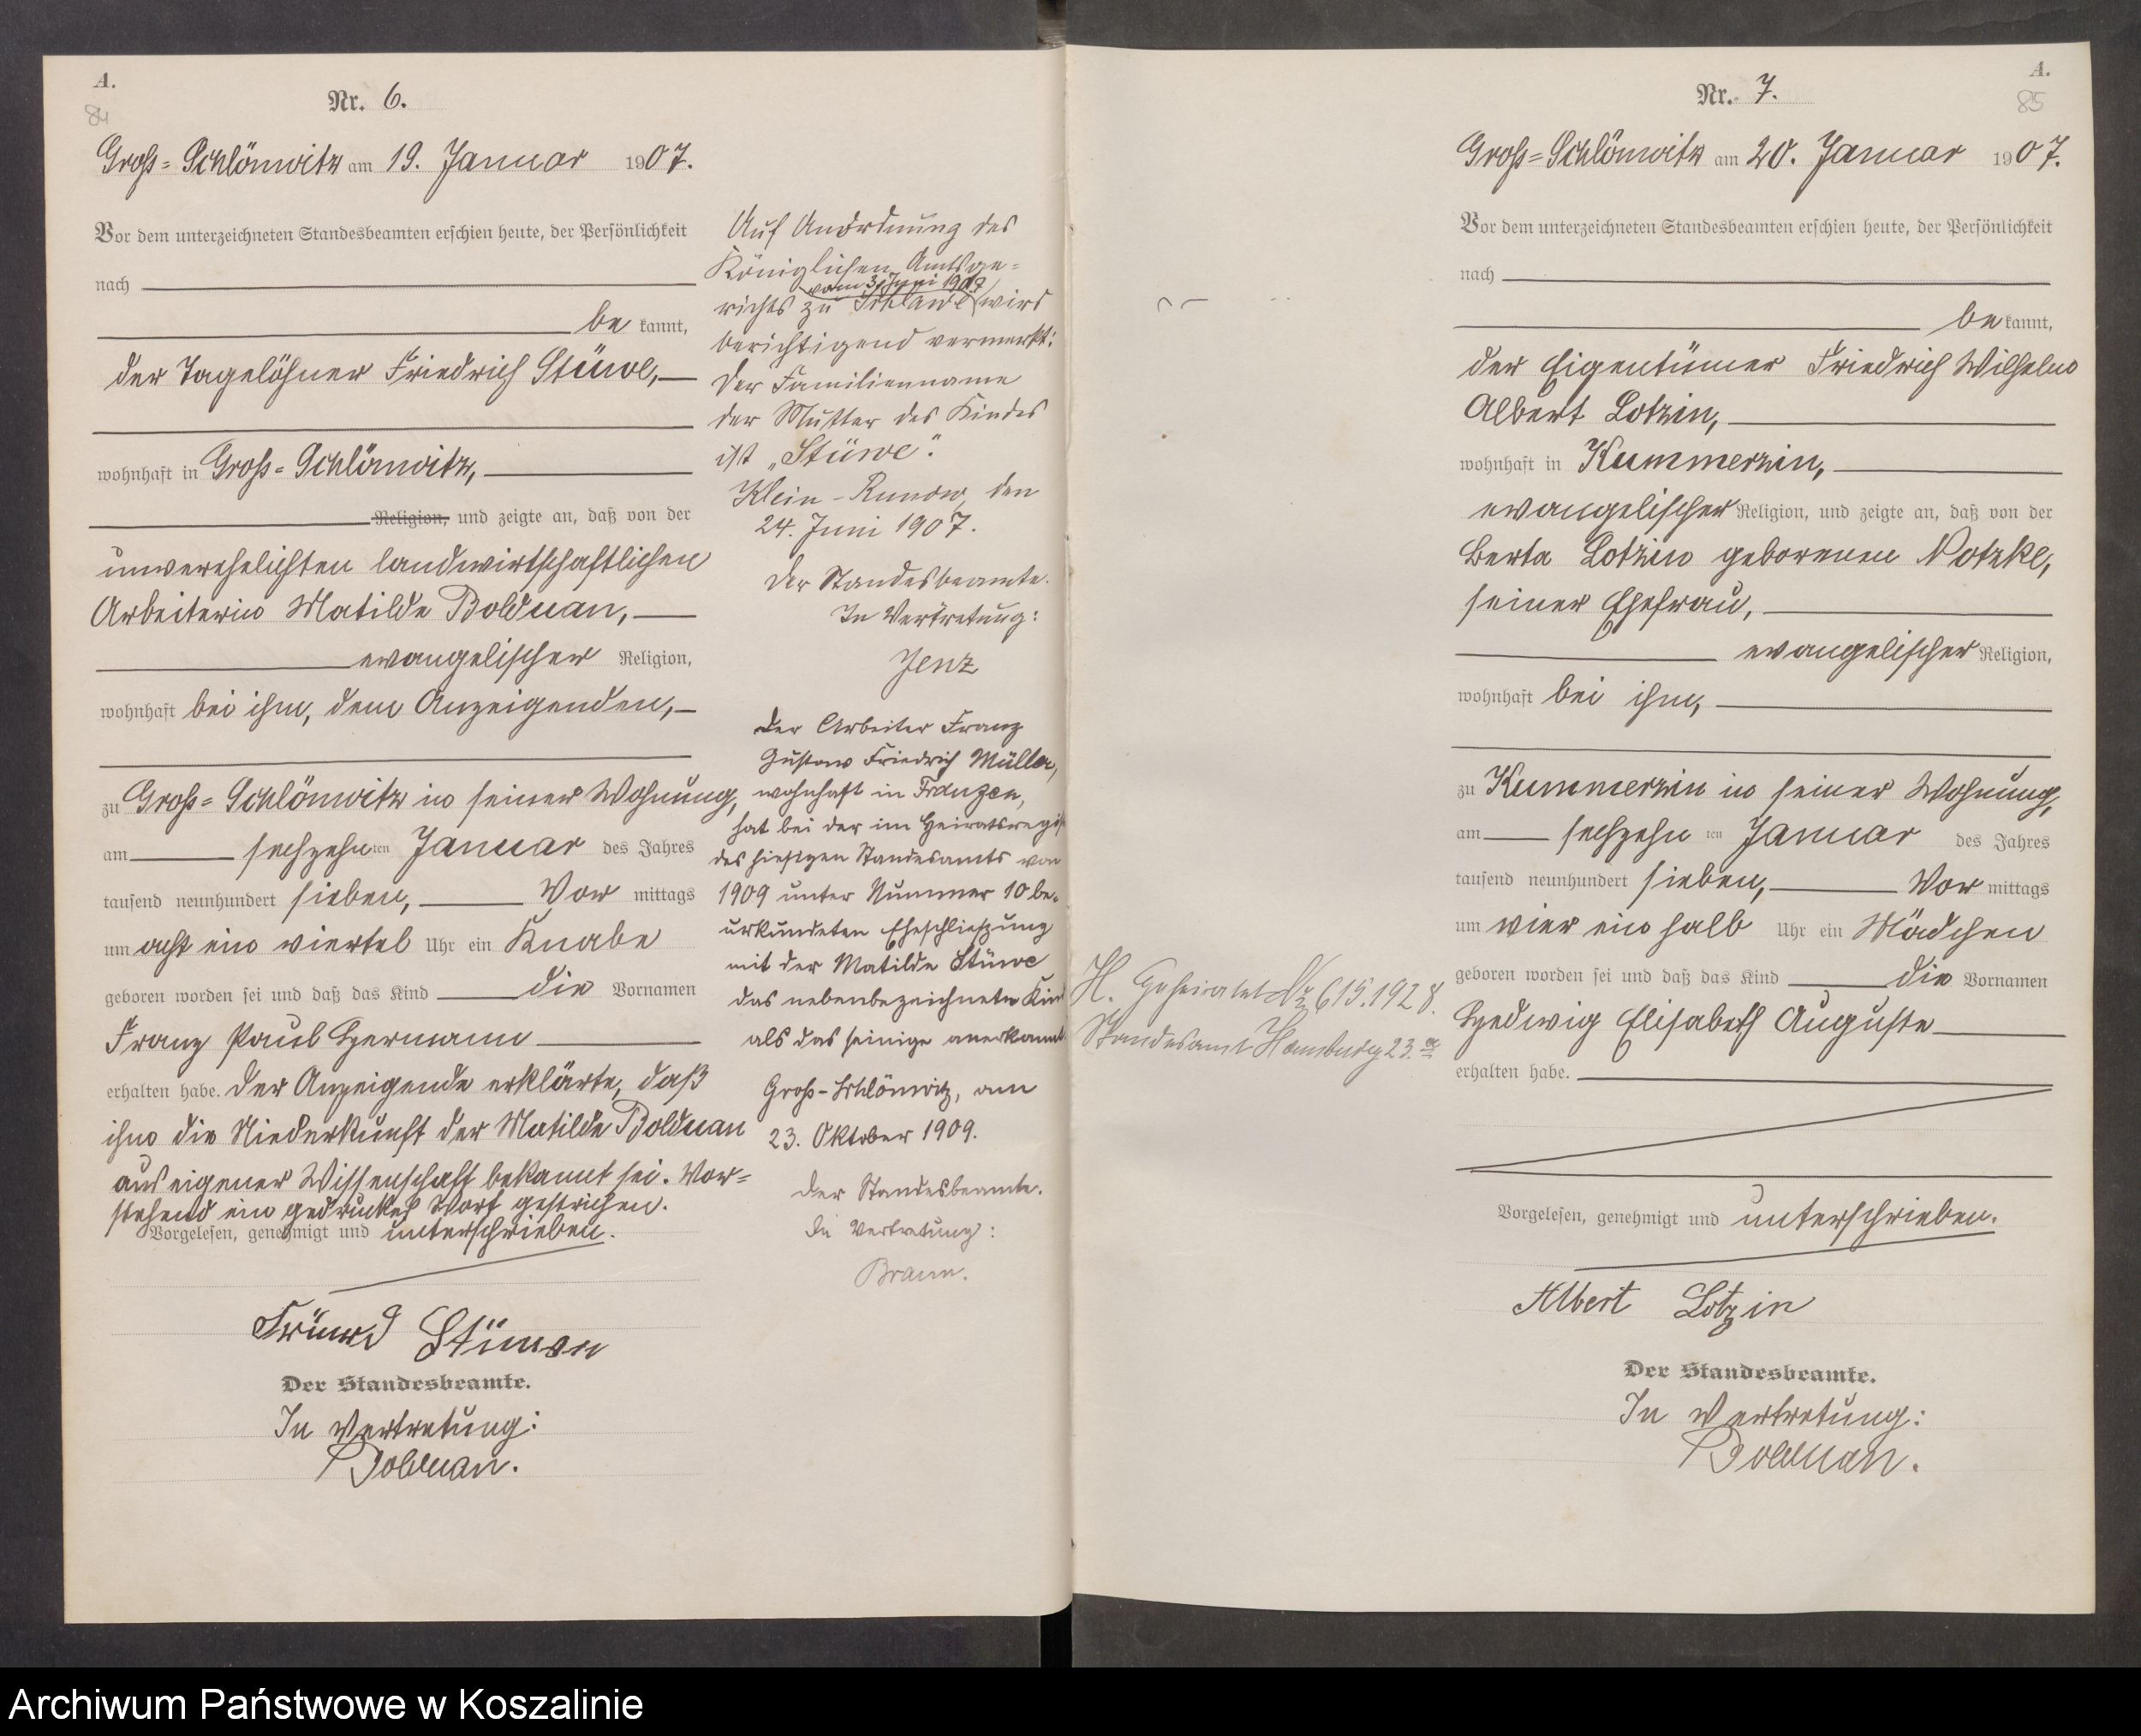 A.
84
Nr. 6.
Groß=Schlönwitz am 19. Januar 1907.
Vor dem unterzeichneten Standesbeamten erschien heute, der Persönlichkeit
nach
be kannt,
der Tagelöhner Friedrich Stüwe,
wohnhaft in Groß=Schlönwitz,
Religion, und zeigte an, daß von der
unverehelichten landwirtschaftlichen
Arbeiterin Matilde Bolduan,
evangelischer Religion,
wohnhaft bei ihm, dem Anzeigenden,
zu Groß=Schlönwitz in seiner Wohnung,
am sechzehnten Januar des Jahres
tausend neunhundert sieben, Vor mittags
um acht ein viertel Uhr ein Knabe
geboren worden sei und daß das Kind die Vornamen
Franz Paul Hermann
erhalten habe. Der Anzeigende erklärte, daß
ihm die Niederkunft der Matilde Bolduan
aus eigener Wissenschaft bekannt sei. Vor=
stehend ein gedrucktes Wort gestrichen.
Vorgelesen, genehmigt und unterschrieben.
Stüwe
Der Standesbeamte.
In Vertretung:
Bolduan.
Auf Anordnung des
Königlichen Amtsge=
vom 3. Juni 1907
richts zu Schlawe wird
berichtigend vermerkt:
Der Familienname
der Mutter des Kindes
ist „Stüwe".
Klein-Runow, den
24. Juni 1907.
Der Standesbeamte.
In Vertretung:
Jenz
Der Arbeiter Franz
Gustav Friedrich Müller,
wohnhaft in Franzen,
hat bei der im Heiratsregist
des hiesigen Standesamts von
1909 unter Nummer 10 be-
urkundeten Eheschließung
mit der Matilde Stüwe
das nebenbezeichnete Kind
als das seinige anerkannt
Groß-Schlönwitz, am
23. Oktober 1909.
Der Standesbeamte.
In Vertretung:
Braun.
A.
85
Nr. 7.
Groß=Schlönwitz am 20. Januar 1907.
Vor dem unterzeichneten Standesbeamten erschien heute, der Persönlichkeit
nach
be kannt,
der Eigentümer Friedrich Wilhelm
Albert Lotzin,
wohnhaft in Kummerzin,
evangelischer Religion, und zeigte an, daß von der
Berta Lotzin geborenen Notzke,
seiner Ehefrau,
evangelischer Religion,
wohnhaft bei ihm,
zu Kummerzin in seiner Wohnung,
am sechzehn ten Januar des Jahres
tausend neunhundert sieben, Vor mittags
um vier ein halb Uhr ein Mädchen
geboren worden sei und daß das Kind die Vornamen
Hedwig Elisabeth Auguste
erhalten habe.
Vorgelesen, genehmigt und unterschrieben.
Albert Lotzin
Der Standesbeamte.
In Vertretung:
Bolduan.
H. Geheiratet Nr. 615.1928.
Standesamt Hamburg 23.a
Archiwum Państwowe w Koszalinie